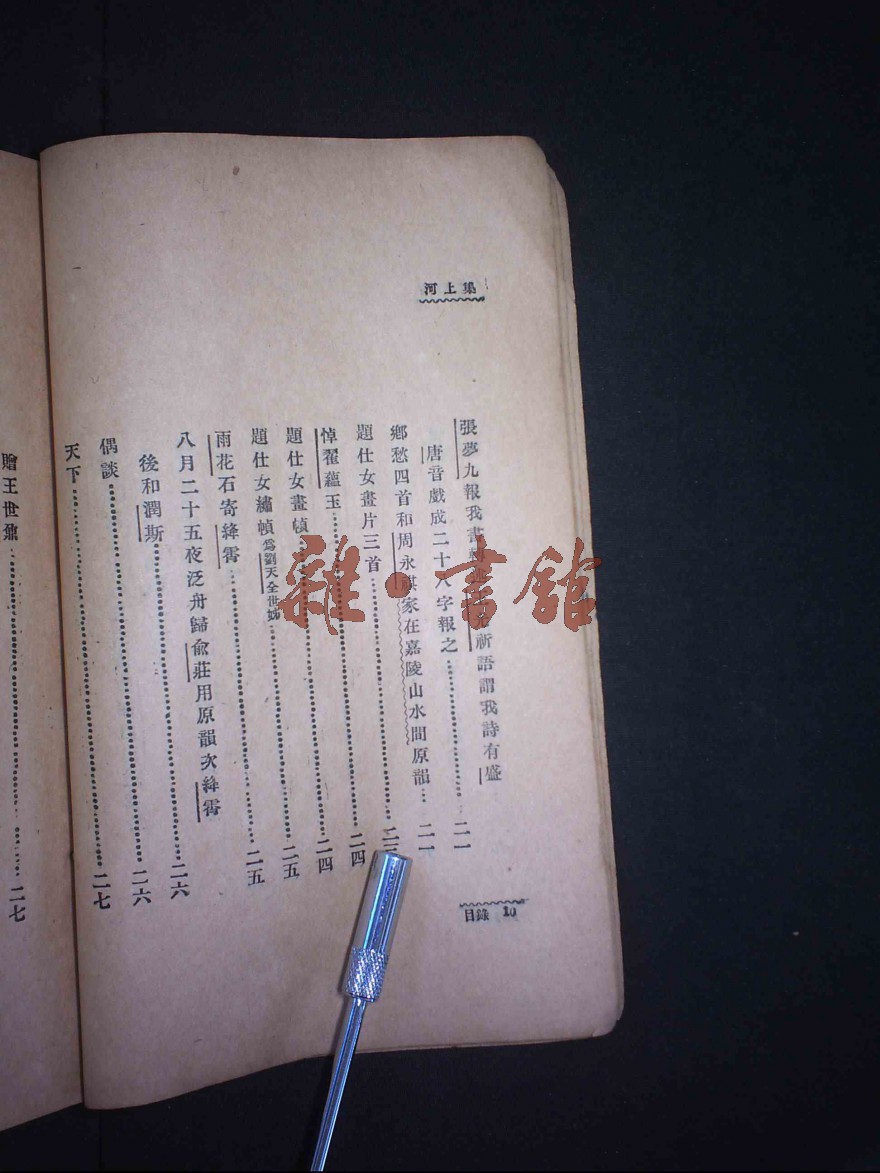 河上集
張夢九報我書
祈語謂我詩有盛
唐音戲成二十八字報之……二一
鄉愁四首和周永祺家在嘉陵山水間原韻…二一
題仕女畫片三首……二三
悼翟蘊玉……二四
題仕女畫幀……二四
題仕女繡幀為劉天全世姊……二五
雨花石寄絳霄……二五
八月二十五夜泛舟歸俞莊用原韻次絳霄
後和潤斯……二六
偶談……二六
天下……二七
贈王世鼐……二七
目錄 10
雜·書館